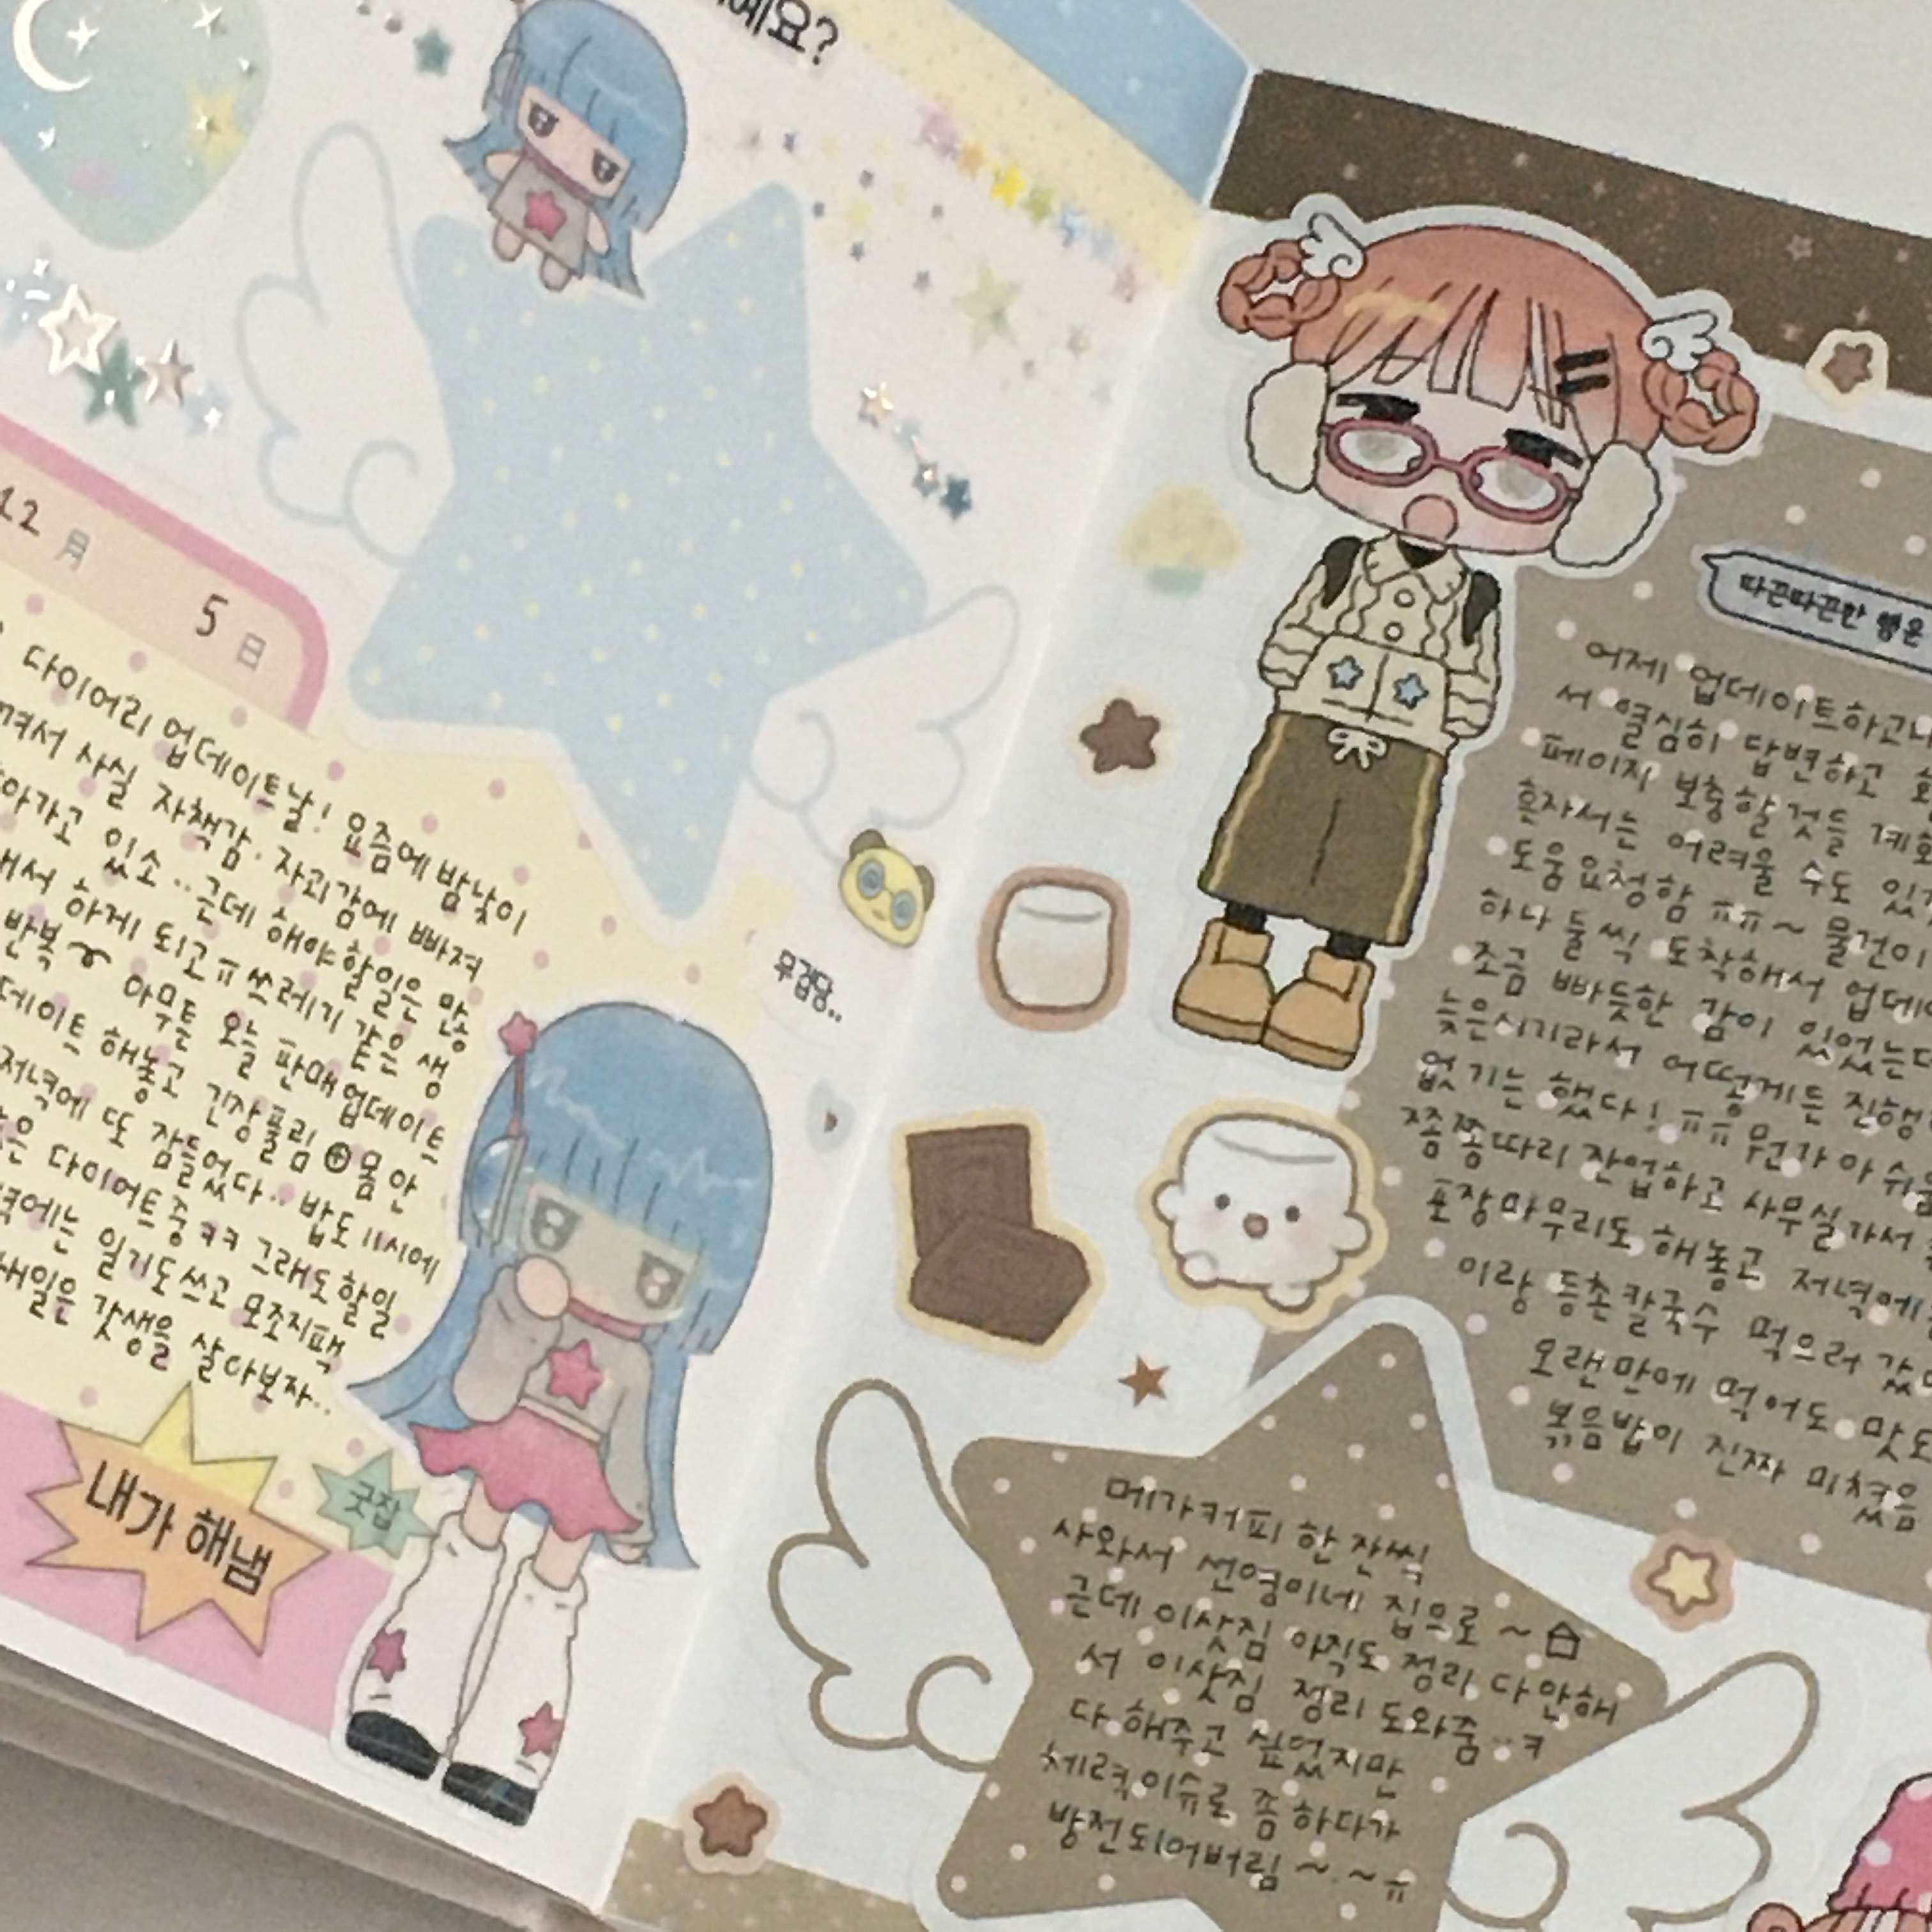 예요?
12月 5日
다이어리 업데이트날! 요즘에 밤낮이
껴서 사실 자책감.자괴감에 빠져
아가고 있소..근데 해야할일은 많
해서 하게 되고ㅠ쓰레기 같은 생
반복 아무튼 오늘 판매업데이트
데이트 해놓고 긴장풀림 ⊕ 몸 안
저녁에 또 잠들었다.. 밥도 11시에
은 다이어트중ㅋㅋ 그래도 할일
녁에는 일기도 쓰고 모조지팩
내일은 갓생을 살아보자..
내가 해냄
굿잡
무겁당..
따끈따끈한 행운
어제 업데이트하고
서 열심히 답변하고
페이지 보충할것들 계획
혼자서는 어려울 수도 있
도움요청함 ㅠㅠ~ 물건이
하나 둘씩 도착해서 업데
조금 빠듯한 감이 있었는데
늦은시기라서 어떻게든 진행
없기는 했다! ㅠㅠ 뭔가 아쉬움
쫑쫑따리 작업하고 사무실가서
포장마무리도 해놓고 저녁에
이랑 등촌칼국수 먹으러 갔
오랜만에 먹어도 맛도
볶음밥이 진짜 미쳤음
메가커피 한 잔씩
사와서 선영이네 집으로 ~
근데 이삿짐 아직도 정리 다안해
서 이삿짐 정리 도와줌..ㅋ
다 해주고 싶었지만
체력이슈로 좀 하다가
방전되어버림 ~.~ㅠ